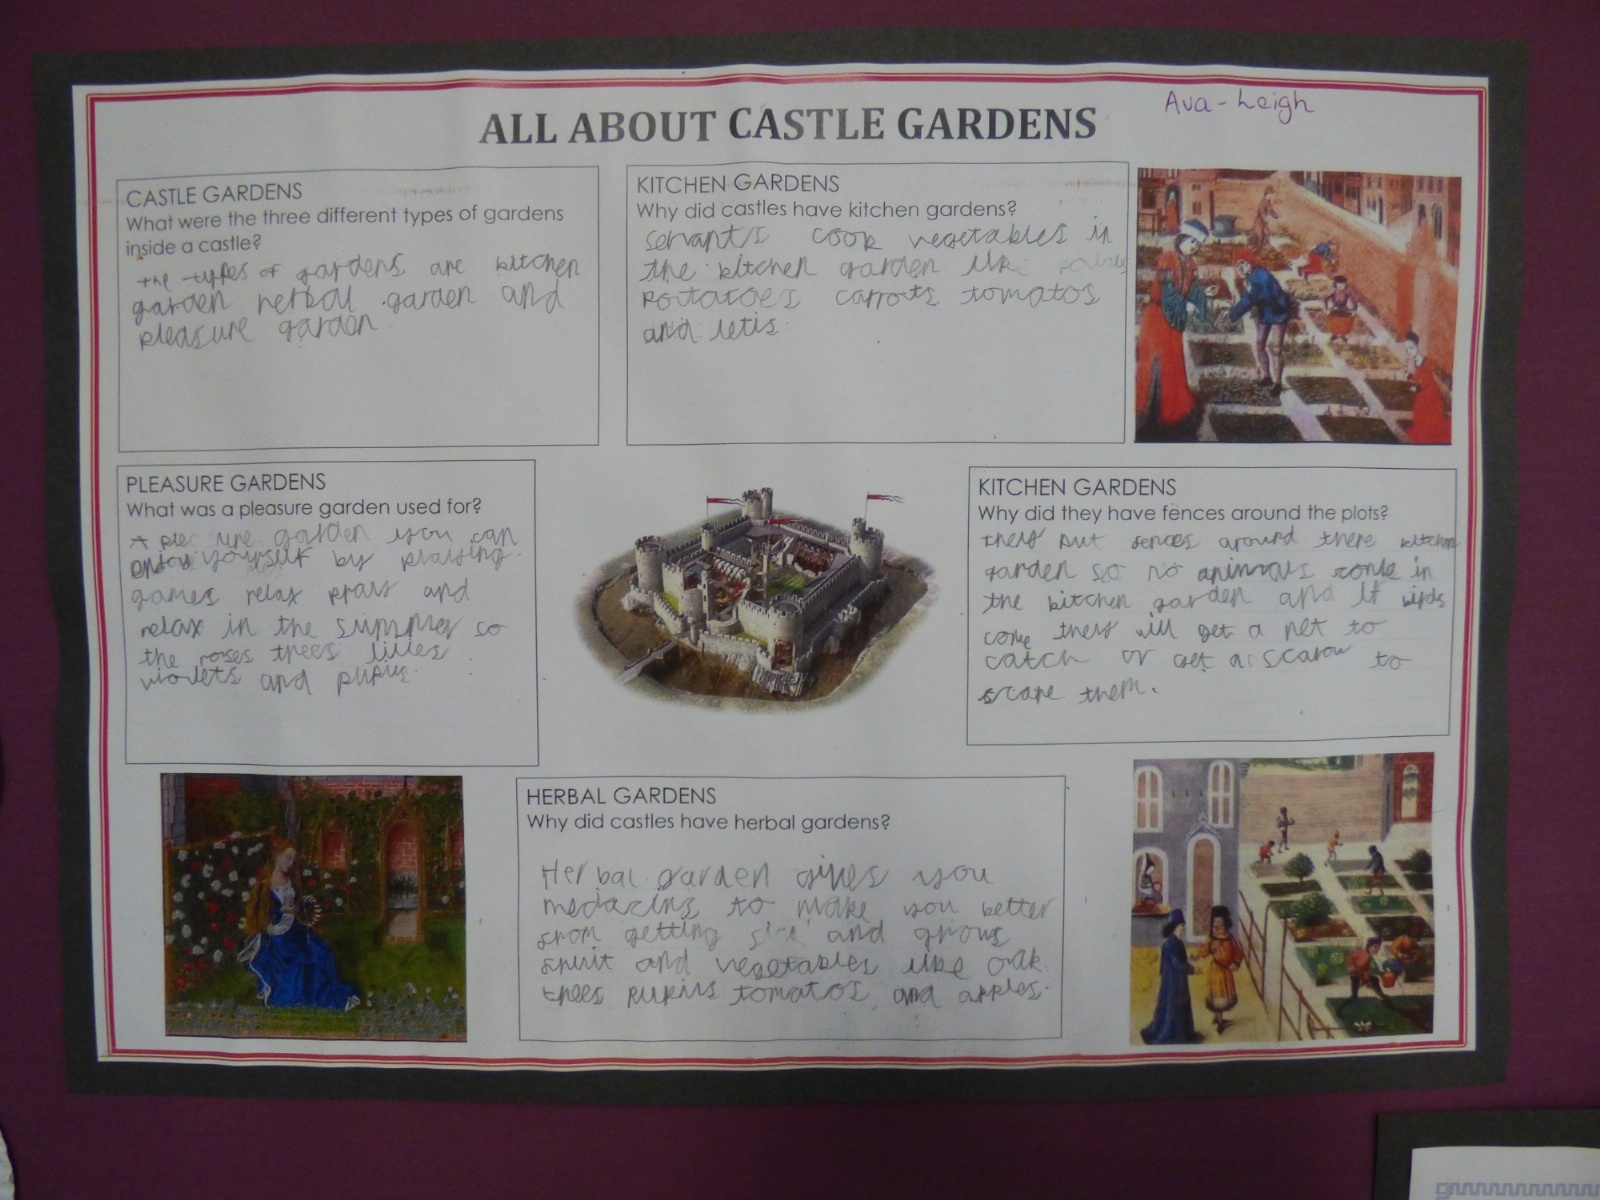 ALL ABOUT CASTLE GARDENS
Ava-Leigh
CASTLE GARDENS
What were the three different types of gardens
inside a castle?
the types of gardens are kitchen
garden herbal garden and
pleasure garden
KITCHEN GARDENS
Why did castles have kitchen gardens?
servants cook vegetables in
the kitchen garden like
potatoes carrots tomatos
and letis.
PLEASURE GARDENS
What was a pleasure garden used for?
A garden you can
yourself by playing
games relax pray and
relax in the summer so
the roses trees lilies
violets and
KITCHEN GARDENS
Why did they have fences around the plots?
they put fences around there kitchen
garden so no animals come in
the kitchen garden and if birds
come they will get a net to
catch or get a scarow to
scare them.
HERBAL GARDENS
Why did castles have herbal gardens?
Herbal garden gives you
to make you better
from getting and grows
fruit and vegetables like oak
trees tomatos and apples.